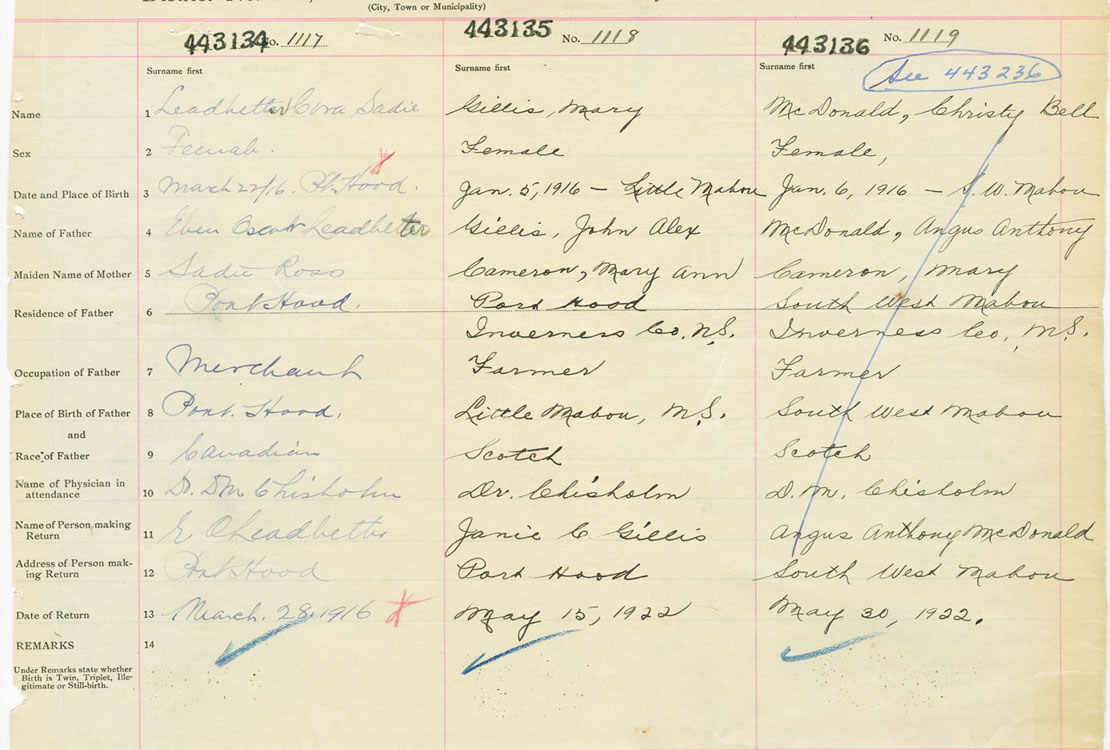 (City, Town or Municipality)
443134 No. 1117 443135 No. 1118 443136 No. 1119
Surname first Surname first Surname first See 443236
Name 1 Leadbetter Cora Sadie Gillis, Mary McDonald, Christy Bell
Sex 2 Female. Female Female,
Date and Place of Birth 3 March 22/16. Pt. Hood. Jan. 5, 1916 – Little Mabou Jan. 6, 1916 – S. W. Mabou
Name of Father 4 Eben Oscar Leadbetter Gillis, John Alex McDonald, Angus Anthony
Maiden Name of Mother 5 Sadie Ross Cameron, Mary Ann Cameron, Mary
Residence of Father 6 Port Hood. Port Hood South West Mabou
Inverness Co. N.S. Inverness Co., N.S.
Occupation of Father 7 Merchant Farmer Farmer
Place of Birth of Father 8 Port. Hood. Little Mabou, N.S. South West Mabou
and
Race of Father 9 Canadian Scotch Scotch
Name of Physician in attendance 10 Dr. DM Chisholm Dr. Chisholm D. M. Chisholm
Name of Person making Return 11 E O Leadbetter Janie C. Gillis Angus Anthony McDonald
Address of Person making Return 12 Port Hood Port Hood South West Mabou
Date of Return 13 March. 28, 1916 May 15, 1922 May 30, 1922.
REMARKS 14
Under Remarks state whether
Birth is Twin, Triplet, Ille-
gitimate or Still-birth.